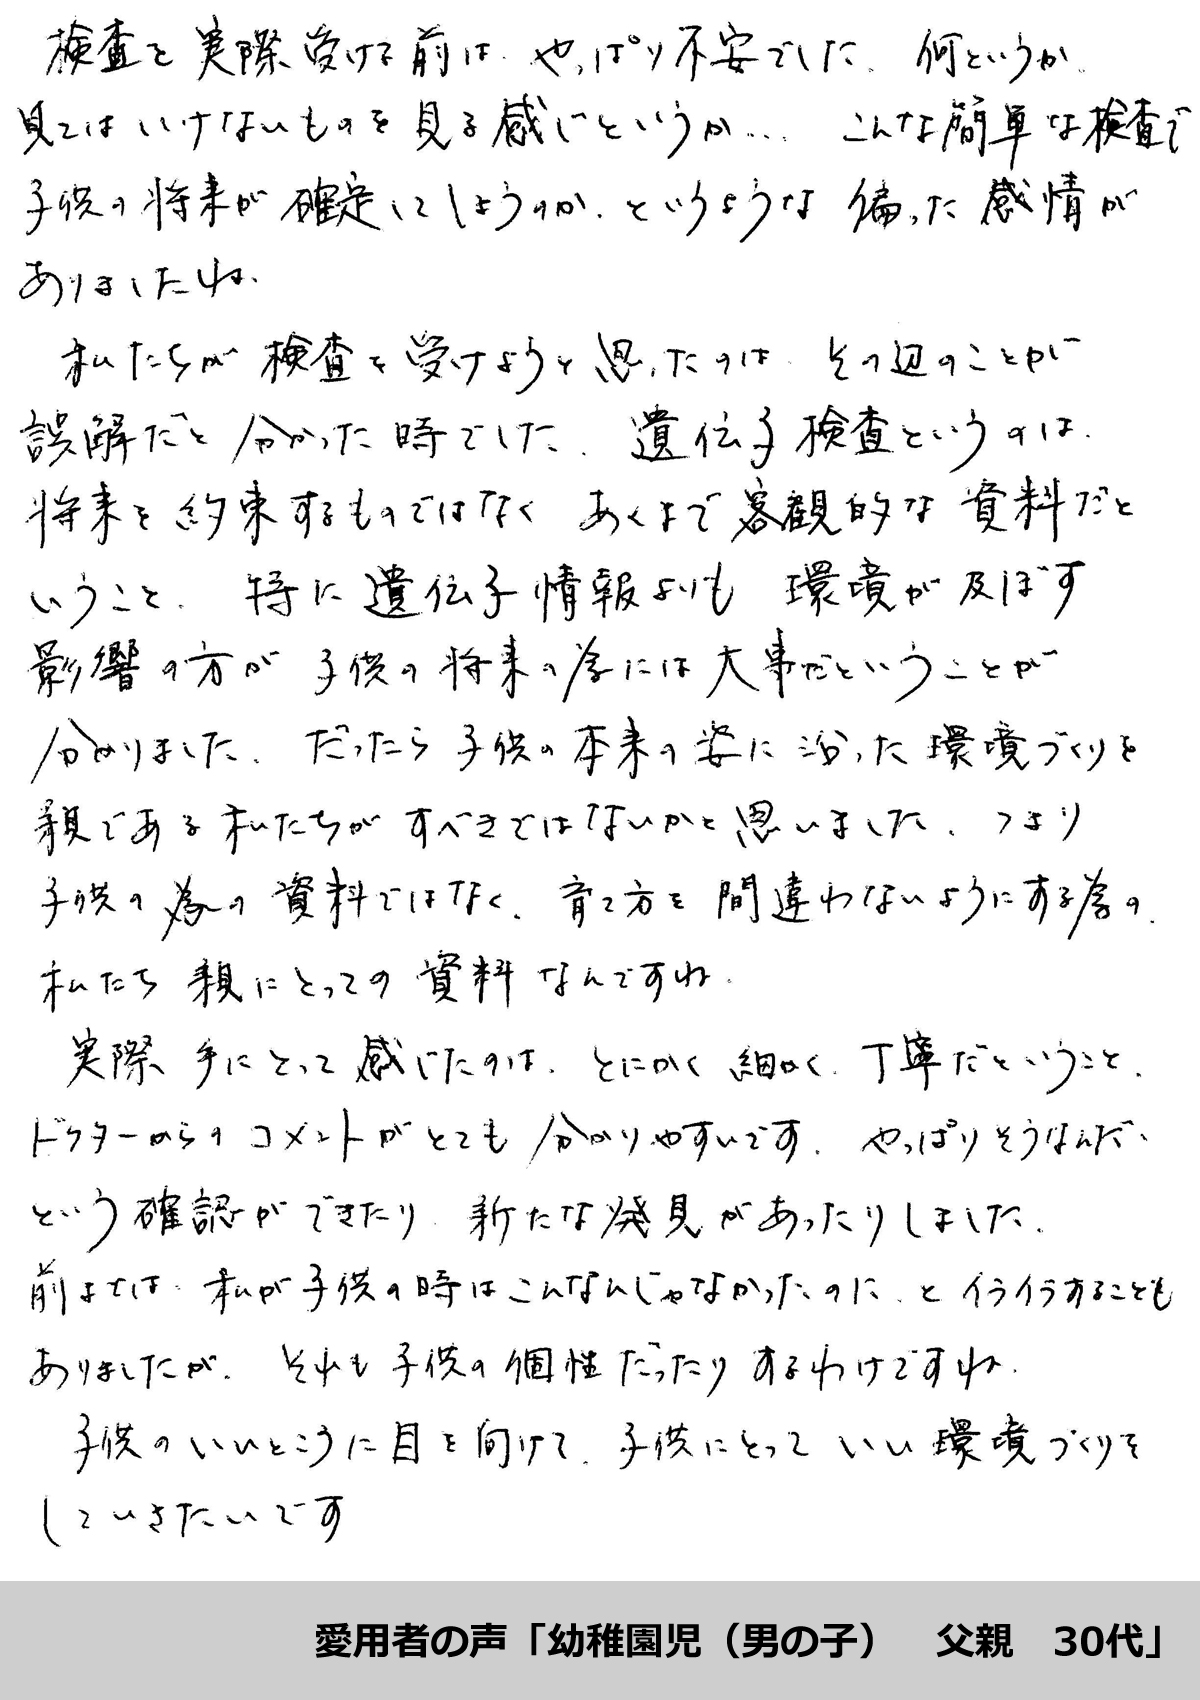 検査を実際受ける前は、やっぱり不安でした。何というか、
見てはいけないものを見る感じというか… こんな簡単な検査で
子供の将来が確定してしまうのか、というような偏った感情が
ありましたね。
私たちが検査を受けようと思ったのは、その辺のことが
誤解だと分かった時でした。遺伝子検査というのは、
将来を約束するものではなく あくまで客観的な資料だと
いうこと。特に遺伝子情報よりも 環境が及ぼす
影響の方が 子供の将来の為には大事だということが
分かりました。だったら子供の本来の姿に沿った環境づくりを
親である私たちがすべきではないかと思いました。つまり
子供の為の資料ではなく、育て方を間違わないようにする為の、
私たち親にとっての資料なんですね。
実際、手にとって感じたのは、とにかく細かく、丁寧だということ。
ドクターからのコメントがとても分かりやすいです。やっぱりそうなんだ、
という確認ができたり、新たな発見があったりしました。
前までは、私が子供の時はこんなんじゃなかったのに、とイライラすることも
ありましたが、それも子供の個性だったりするわけですね。
子供のいいところに目を向けて、子供にとっていい環境づくりを
していきたいです
愛用者の声「幼稚園児（男の子） 父親 30代」